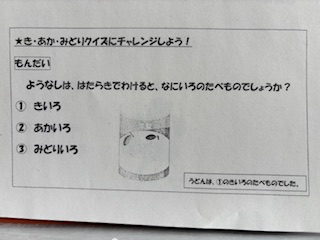 ★き・あか・みどりクイズにチャレンジしよう！
もんだい
ようなしは、はたらきでわけると、なにいろのたべものでしょうか？
① きいろ
② あかいろ
③ みどりいろ
うどんは、①のきいろのたべものでした。